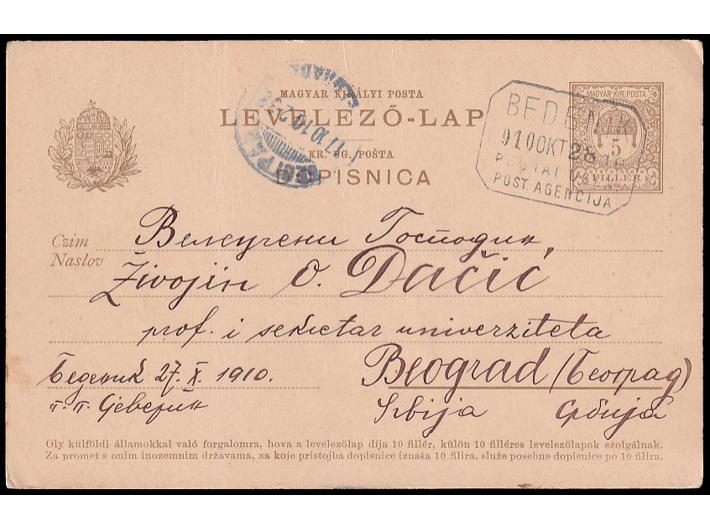 MAGYAR KIRÁLYI POSTA
LEVELEZŐ-LAP
KR. UG. POŠTA
DOPISNICA
MAGYAR KIR. POSTA
5
FILLÉR
BEDENIK
910 OKT 28
POST. AGENCIJA
Czim
Naslov
Велеучени Господин,
Živojin O. Dačić
prof. i sekretar univerziteta
Beograd (Београд)
Srbija Србија
Беденик 27. X. 1910.
п. п. Северин
Oly külföldi államokkal való forgalomra, hova a levelezőlap díja 10 fillér, külön 10 filléres levelezőlapok szolgálnak.
Za promet s onim inozemnim državama, za koje pristojba dopisnice iznaša 10 filira, služe posebne dopisnice po 10 filira.